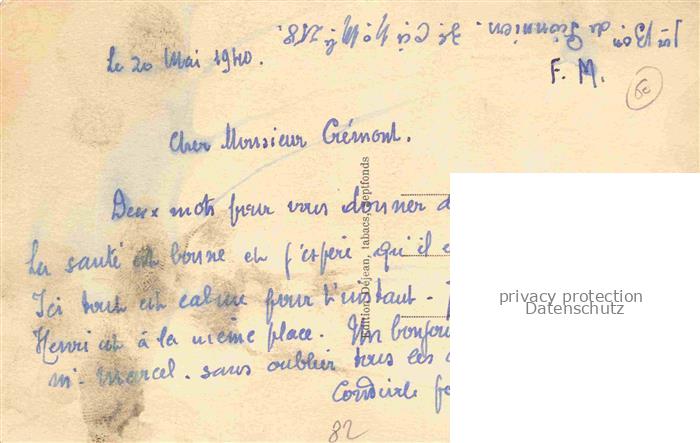 Le 20 Mai 1940.
F. M.
Cher Monsieur Crémont.
Deux mots pour vous donner d
La santé est bonne et j'espère qu'il e
Ici tout est calme pour l'instant -
Henri est à la même place. Un bonjou
M. Marcel. sans oublier tous les
Cordiale
82
Edition Dejean, tabacs, Septfonds
privacy protection
Datenschutz